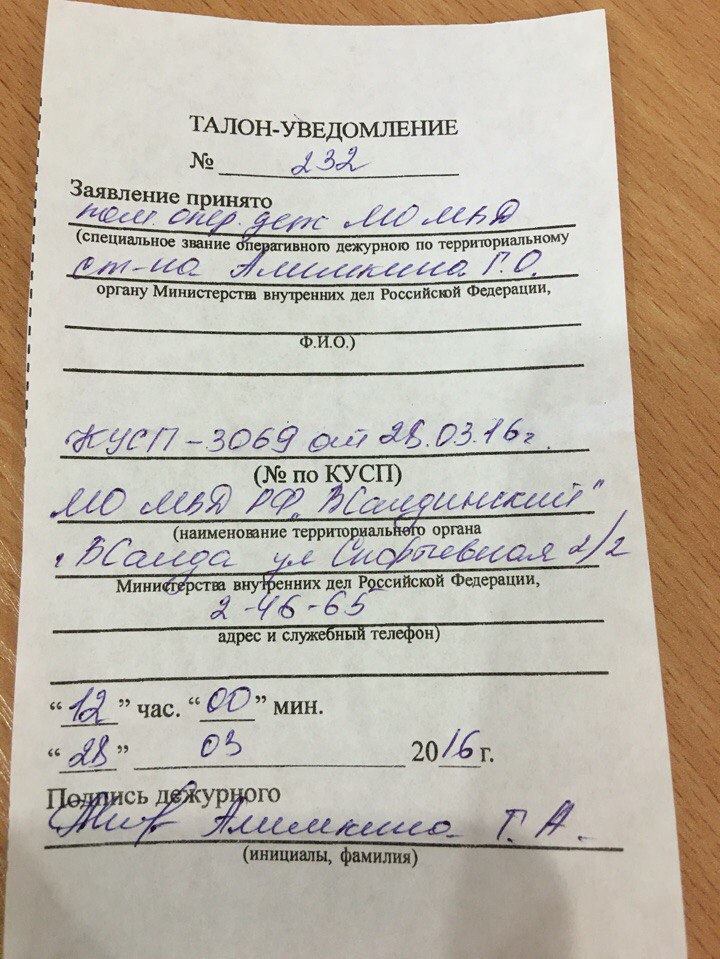 ТАЛОН-УВЕДОМЛЕНИЕ
№ 232
Заявление принято
пом опер. деж МО МВД
(специальное звание оперативного дежурною по территориальному
ст-на Алимкина Г.О.
органу Министерства внутренних дел Российской Федерации,
Ф.И.О.)
КУСП-3069 от 28.03.16г.
(№ по КУСП)
МО МВД РФ "ВСалдинский"
(наименование территориального органа
г. ВСалда ул 2/2
Министерства внутренних дел Российской Федерации,
2-46-65
адрес и служебный телефон)
“12” час. “00” мин.
“28” 03 2016 г.
Подпись дежурного
Алимкина Г. А.
(инициалы, фамилия)